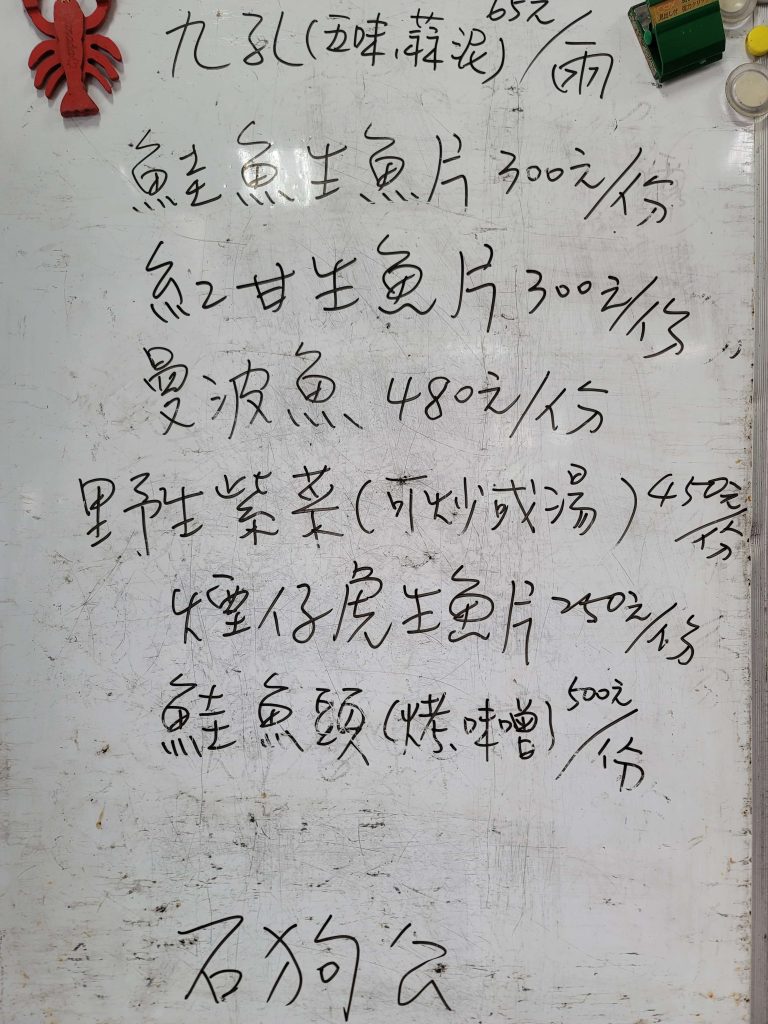 九孔(五味、蒜泥)65元/兩
鮭魚生魚片300元/份
紅甘生魚片300元/份
曼波魚 480元/份
野生紫菜(可炒或湯)450元/份
煙仔虎生魚片250元/份
鮭魚頭(烤、味噌)500元/份
石狗公